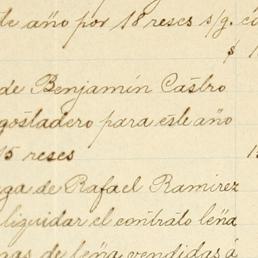 de año por 18 reses s/g. c
$ 1
de Benjamín Castro
gostadero para este año
15 reses 1
ga de Rafael Ramirez
liquidar el contrato leña
gas de leña vendidas á